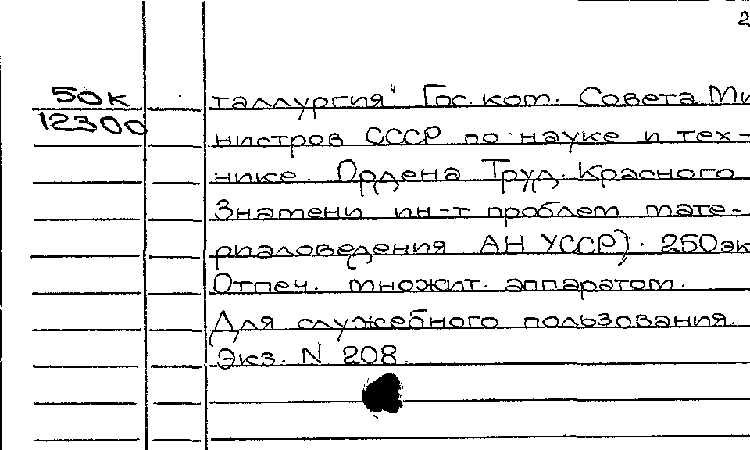 2
50к
12300
таллургия" Гос. ком. Совета Ми
нистров СССР по науке и тех-
нике. Ордена Труд. Красного
Знамени ин-т проблем мате-
риаловедения АН УССР). 250эк
Отпеч. множит. аппаратом.
Для служебного пользования.
Экз. N 208.